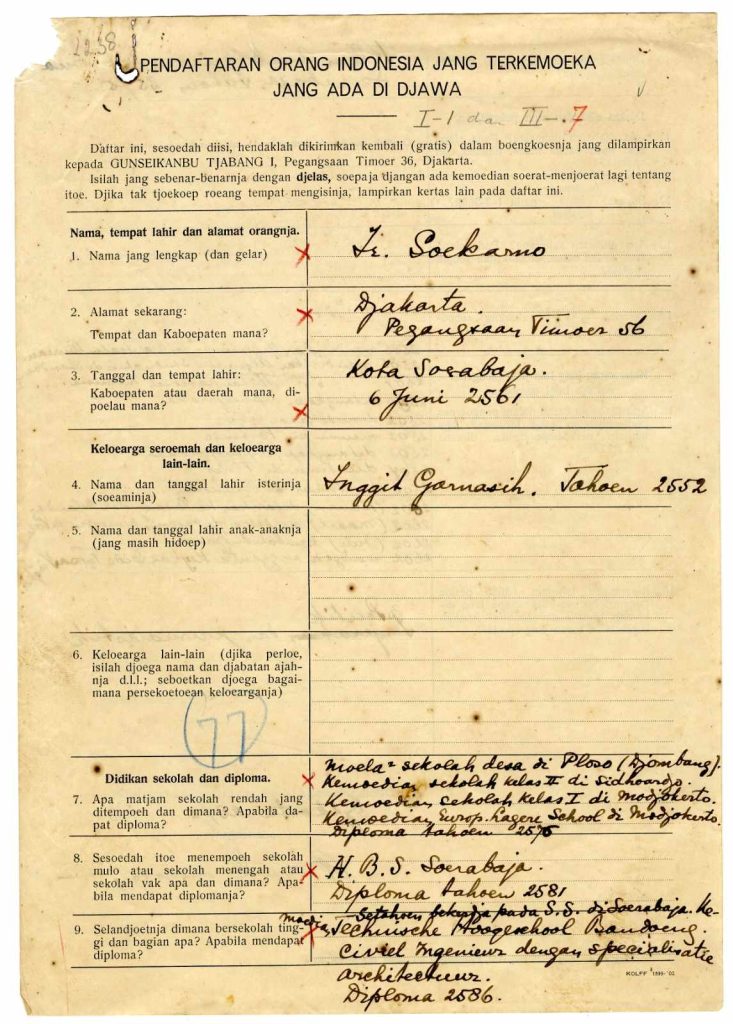 2238
PENDAFTARAN ORANG INDONESIA JANG TERKEMOEKA
JANG ADA DI DJAWA
I-1 dan III-.7
Daftar ini, sesoedah diisi, hendaklah dikirimkan kembali (gratis) dalam boengkoesnja jang dilampirkan
kepada GUNSEIKANBU TJABANG I, Pegangsaan Timoer 36, Djakarta.
Isilah jang sebenar-benarnja dengan djelas, soepaja djangan ada kemoedian soerat-menjoerat lagi tentang
itoe. Djika tak tjoekoep roeang tempat mengisinja, lampirkan kertas lain pada daftar ini.
Nama, tempat lahir dan alamat orangnja.
1. Nama jang lengkap (dan gelar)
Ir. Soekarno
2. Alamat sekarang:
Tempat dan Kaboepaten mana?
Djakarta.
Pegangsaan Timoer 56
3. Tanggal dan tempat lahir:
Kaboepaten atau daerah mana, di-
poelau mana?
Kota Soerabaja.
6 Juni 2561
Keloearga seroemah dan keloearga
lain-lain.
4. Nama dan tanggal lahir isterinja
(soeaminja)
Inggit Garnasih. Tahoen 2552
5. Nama dan tanggal lahir anak-anaknja
(jang masih hidoep)
6. Keloearga lain-lain (djika perloe,
isilah djoega nama dan djabatan ajah-
nja d.l.l.; seboetkan djoega bagai-
mana persekoetoean keloearganja)
77
Didikan sekolah dan diploma.
7. Apa matjam sekolah rendah jang
ditempoeh dan dimana? Apabila da-
pat diploma?
Moela² sekolah desa di Ploso (Djombang).
Kemoedian sekolah kelas II di Sidhoardjo.
Kemoedian sekolah kelas I di Modjokerto.
Kemoedian Europ. Lagere School di Modjokerto.
Diploma tahoen 2576
8. Sesoedah itoe menempoeh sekolah
mulo atau sekolah menengah atau
sekolah vak apa dan dimana? Apa-
bila mendapat diplomanja?
H. B. S. Soerabaja.
Diploma tahoen 2581
9. Selandjoetnja dimana bersekolah ting-
gi dan bagian apa? Apabila mendapat
diploma?
Setahoen bekerdja pada S.S. di Soerabaja. Ke-
moedian Technische Hoogeschool Bandoeng.
Civiel Ingenieur dengan specialisatie
architectuur.
Diploma 2586.